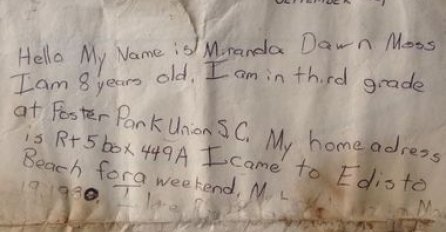 SEPTEMBER
Hello My Name is Miranda Dawn Moss
I am 8 years old. I am in third grade
at Foster Park Union S.C. My home adress
is Rt 5 box 449A I came to Edisto
Beach for a weekend. M
I